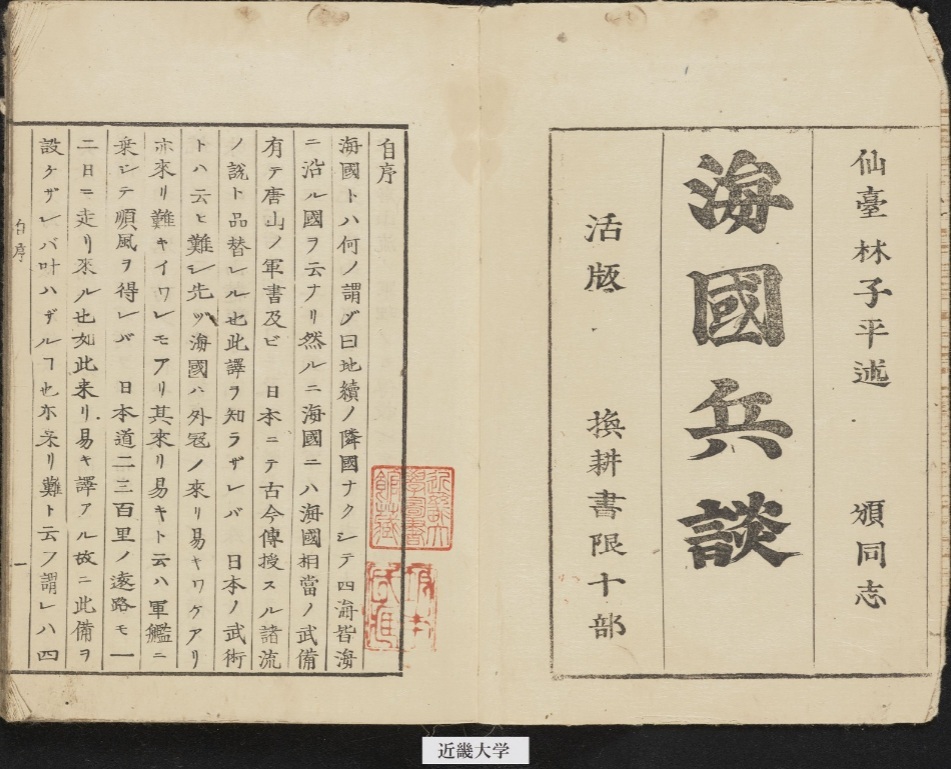 仙臺 林子平述 頒同志
海國兵談
活版 換耕書限十部
自序
海國トハ何ノ謂ゾ曰地續ノ隣國ナクシテ四海皆海
ニ沿ル國ヲ云ナリ然ルニ海國ニハ海國相當ノ武備
有テ唐山ノ軍書及ビ 日本ニテ古今傳授スル諸流
ノ說ト品替レル也此譯ヲ知ラザレバ 日本ノ武術
トハ云ヒ難シ先ツ海國ハ外冦ノ來リ易キワケアリ
亦來リ難キイワレモアリ其來リ易キト云ハ軍艦ニ
乗シテ順風ヲ得レバ 日本道二三百里ノ遠路モ一
二日ニ走リ來ル也如此来リ易キ譯アル故ニ此備ヲ
設ケザレバ叶ハザルヿ也亦來リ難ト云フ謂レハ四
自序
一
近畿大學圖書館藏
近畿大学